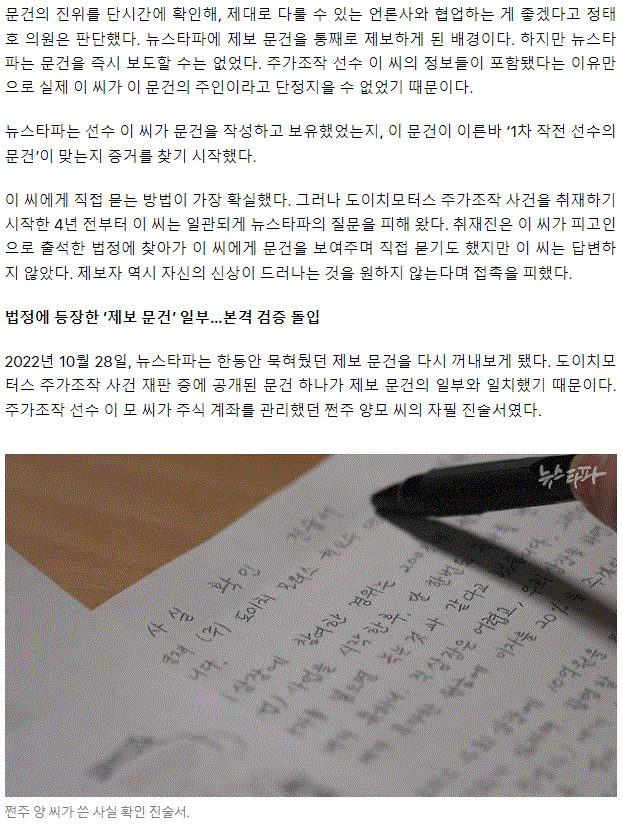 문건의 진위를 단시간에 확인해, 제대로 다룰 수 있는 언론사와 협업하는 게 좋겠다고 정태
호 의원은 판단했다. 뉴스타파에 제보 문건을 통째로 제보하게 된 배경이다. 하지만 뉴스타
파는 문건을 즉시 보도할 수는 없었다. 주가조작 선수 이 씨의 정보들이 포함됐다는 이유만
으로 실제 이 씨가 이 문건의 주인이라고 단정지을 수 없었기 때문이다.
뉴스타파는 선수 이 씨가 문건을 작성하고 보유했었는지, 이 문건이 이른바 '1차 작전 선수의
문건'이 맞는지 증거를 찾기 시작했다.
이 씨에게 직접 묻는 방법이 가장 확실했다. 그러나 도이치모터스 주가조작 사건을 취재하기
시작한 4년 전부터 이 씨는 일관되게 뉴스타파의 질문을 피해 왔다. 취재진은 이 씨가 피고인
으로 출석한 법정에 찾아가 이 씨에게 문건을 보여주며 직접 묻기도 했지만 이 씨는 답변하
지 않았다. 제보자 역시 자신의 신상이 드러나는 것을 원하지 않는다며 접촉을 피했다.
법정에 등장한 ‘제보 문건’ 일부...본격 검증 돌입
2022년 10월 28일, 뉴스타파는 한동안 묵혀뒀던 제보 문건을 다시 꺼내보게 됐다. 도이치모
터스 주가조작 사건 재판 중에 공개된 문건 하나가 제보 문건의 일부와 일치했기 때문이다.
주가조작 선수 이 모 씨가 주식 계좌를 관리했던 쩐주 양모 씨의 자필 진술서였다.
뉴스타파
사실 확인 진술서
(주) 도이치 모터스
니다.
1 상장에 참여한 경위는
사업을 시작한 후, 단 한번도
쩐주 양 씨가 쓴 사실 확인 진술서.